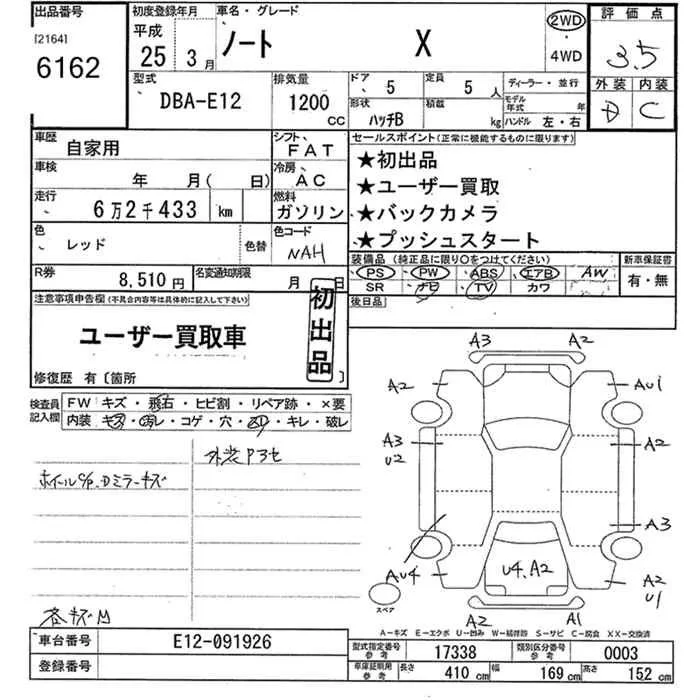 出品番号 初度登録年月 車名・グレード 2WD 評価点
[2164] 平成 ノート X 3.5
6162 25 3月 4WD
外装 内装
型式 排気量 ドア 5 定員 5人 ディーラー・並行 D C
DBA-E12 1200cc 形状 ハッチB 積載 kg モデル年式 年 ハンドル 左・右
車歴 自家用 シフト FAT セールスポイント(正常に機能するものに限ります)
車検 年 月( 日) 冷房 AC ★初出品
★ユーザー買取
走行 6万2千433 km 燃料 ガソリン ★バックカメラ
色 レッド 色替 色コード NAH ★プッシュスタート
装備品(純正品に限り○をつけてください) 新車保証書
PS PW ABS エアB AW 有・無
R券 8,510円 名変通知期限 月 日 SR ナビ TV カワ
後日品
注意事項申告欄(不具合内容等は具体的に記入して下さい) 初出品
ユーザー買取車
修復歴 有〔箇所 〕
検査員記入欄 FW キズ・飛石・ヒビ割・リペア跡・×要
内装・キズ・汚レ・コゲ・穴・凹・キレ・破レ
ホイールC/P. Dミラーキズ
A3 A2
A2 AU1
A3 U2 A2
A3
AU4 U4.A2 A2 U1
スペア
A2 A1
A-キズ E-エクボ U-凹み W-補修跡 S-サビ C-腐食 XX-交換済
車台番号 E12-091926 型式指定番号参考 17338 類別区分番号参考 0003
登録番号 車庫証明用参考 長さ 410cm 幅 169cm 高さ 152cm